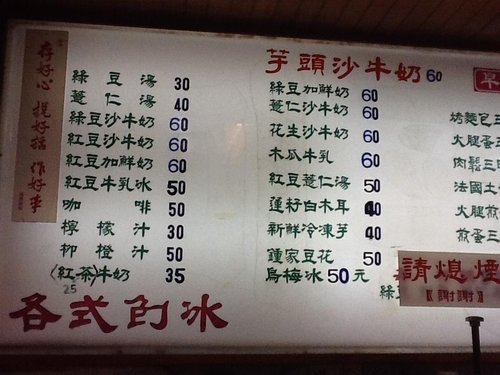 存好心 說好話 作好事
綠豆湯 30
薏仁湯 40
綠豆沙牛奶 60
紅豆沙牛奶 60
紅豆加鮮奶 60
紅豆牛乳冰 50
咖啡 50
檸檬汁 30
柳橙汁 50
(紅茶)牛奶 35
25
各式刨冰
芋頭沙牛奶 60
綠豆加鮮奶 60
薏仁沙牛奶 60
花生沙牛奶 60
木瓜牛乳 60
紅豆薏仁湯 50
蓮籽白木耳 40
新鮮冷凍芋 40
鍾家豆花 50
烏梅冰 50元
早
烤麵包三
火腿蛋三
肉鬆三
法國土
火腿煎
煎蛋三
綠豆
請熄煙
【謝謝】